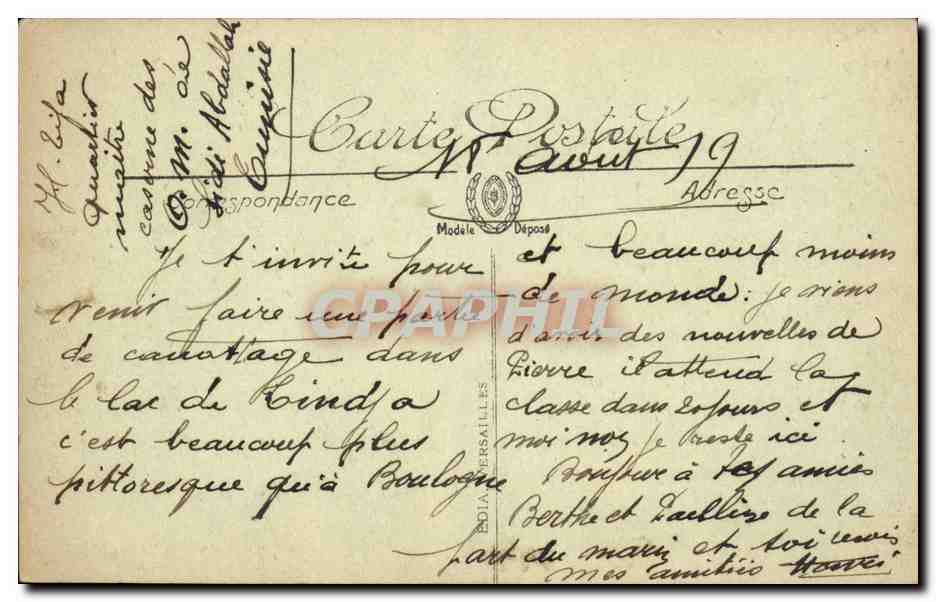 quartier
maitre
caserne des
O. M. de
Sidi Abdallah
Tunisie
Carte Postale
Août 19
Correspondance
Adresse
Modèle Déposé
Je t'invite pour
venir faire une partie
de canottage dans
le lac de Tindja
c'est beaucoup plus
pittoresque qu'à Boulogne
et beaucoup moins
de monde : je viens
d'avoir des nouvelles de
Pierre il attend la
classe dans 20 jours et
moi non je reste ici
Bonjour à tes amies
Berthe et de la
part du marin et toi
mes amitiés
EDIA VERSAILLES
CPAPHIL